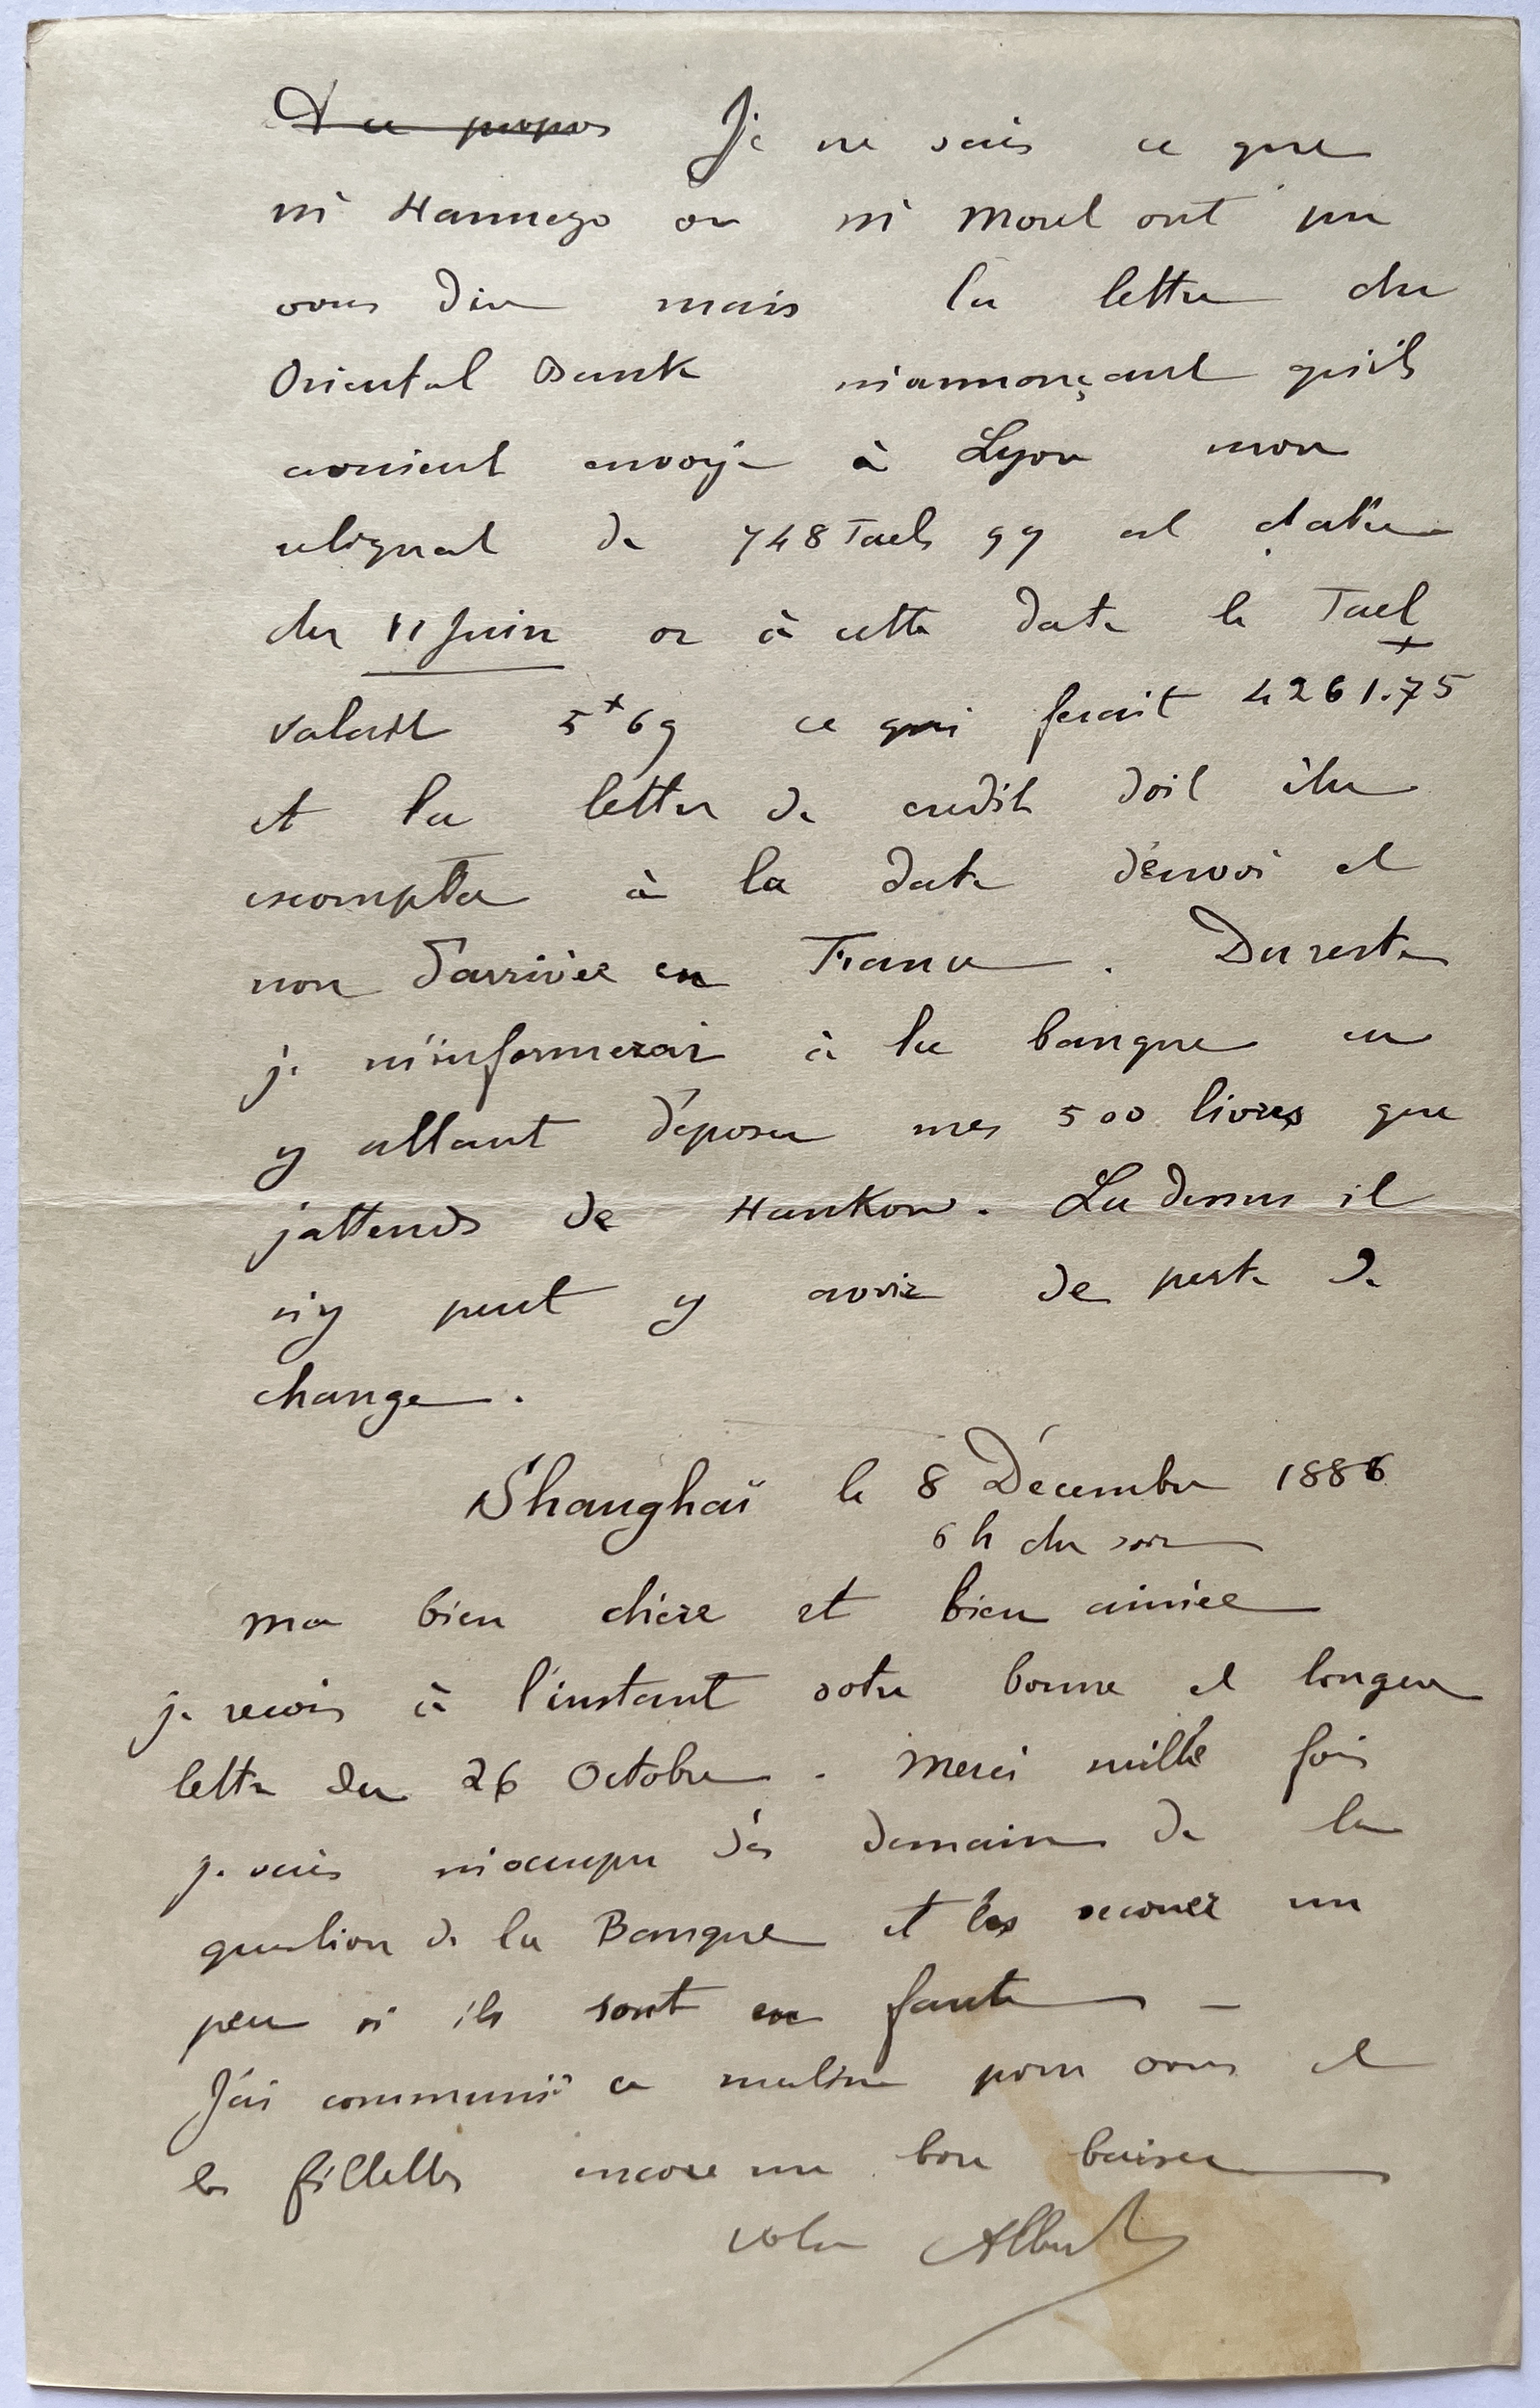 A ce propos Je ne sais ce que
ni Hannezo ou ni Morel ont pu
vous dire mais la lettre du
Oriental Bank m'annonçant qu'ils
avaient envoyé à Lyon mon
reliquat de 748 Taels 99 est datée
du 11 Juin or à cette date le Tael
valait 5+69 ce qui ferait 4261.75
et la lettre de credit doit être
escomptée à la date d'envoi et
non d'arrivée en France. Du reste
je m'informerai à la banque en
y allant déposer mes 500 livres que
j'attends de Hankow. La dessus il
n'y peut y avoir de perte de
change.
Shanghaï le 8 Décembre 1886
6 h du soir
Ma bien chère et bien aimée
je recois à l'instant votre bonne et longue
lettre du 26 Octobre. Merci mille fois
je vais m'occuper dès demain de la
question de la Banque et les secouer un
peu si ils sont en faute –
J'ai communié ce matin pour vous et
les fillettes encore un bon baiser
votre Albert